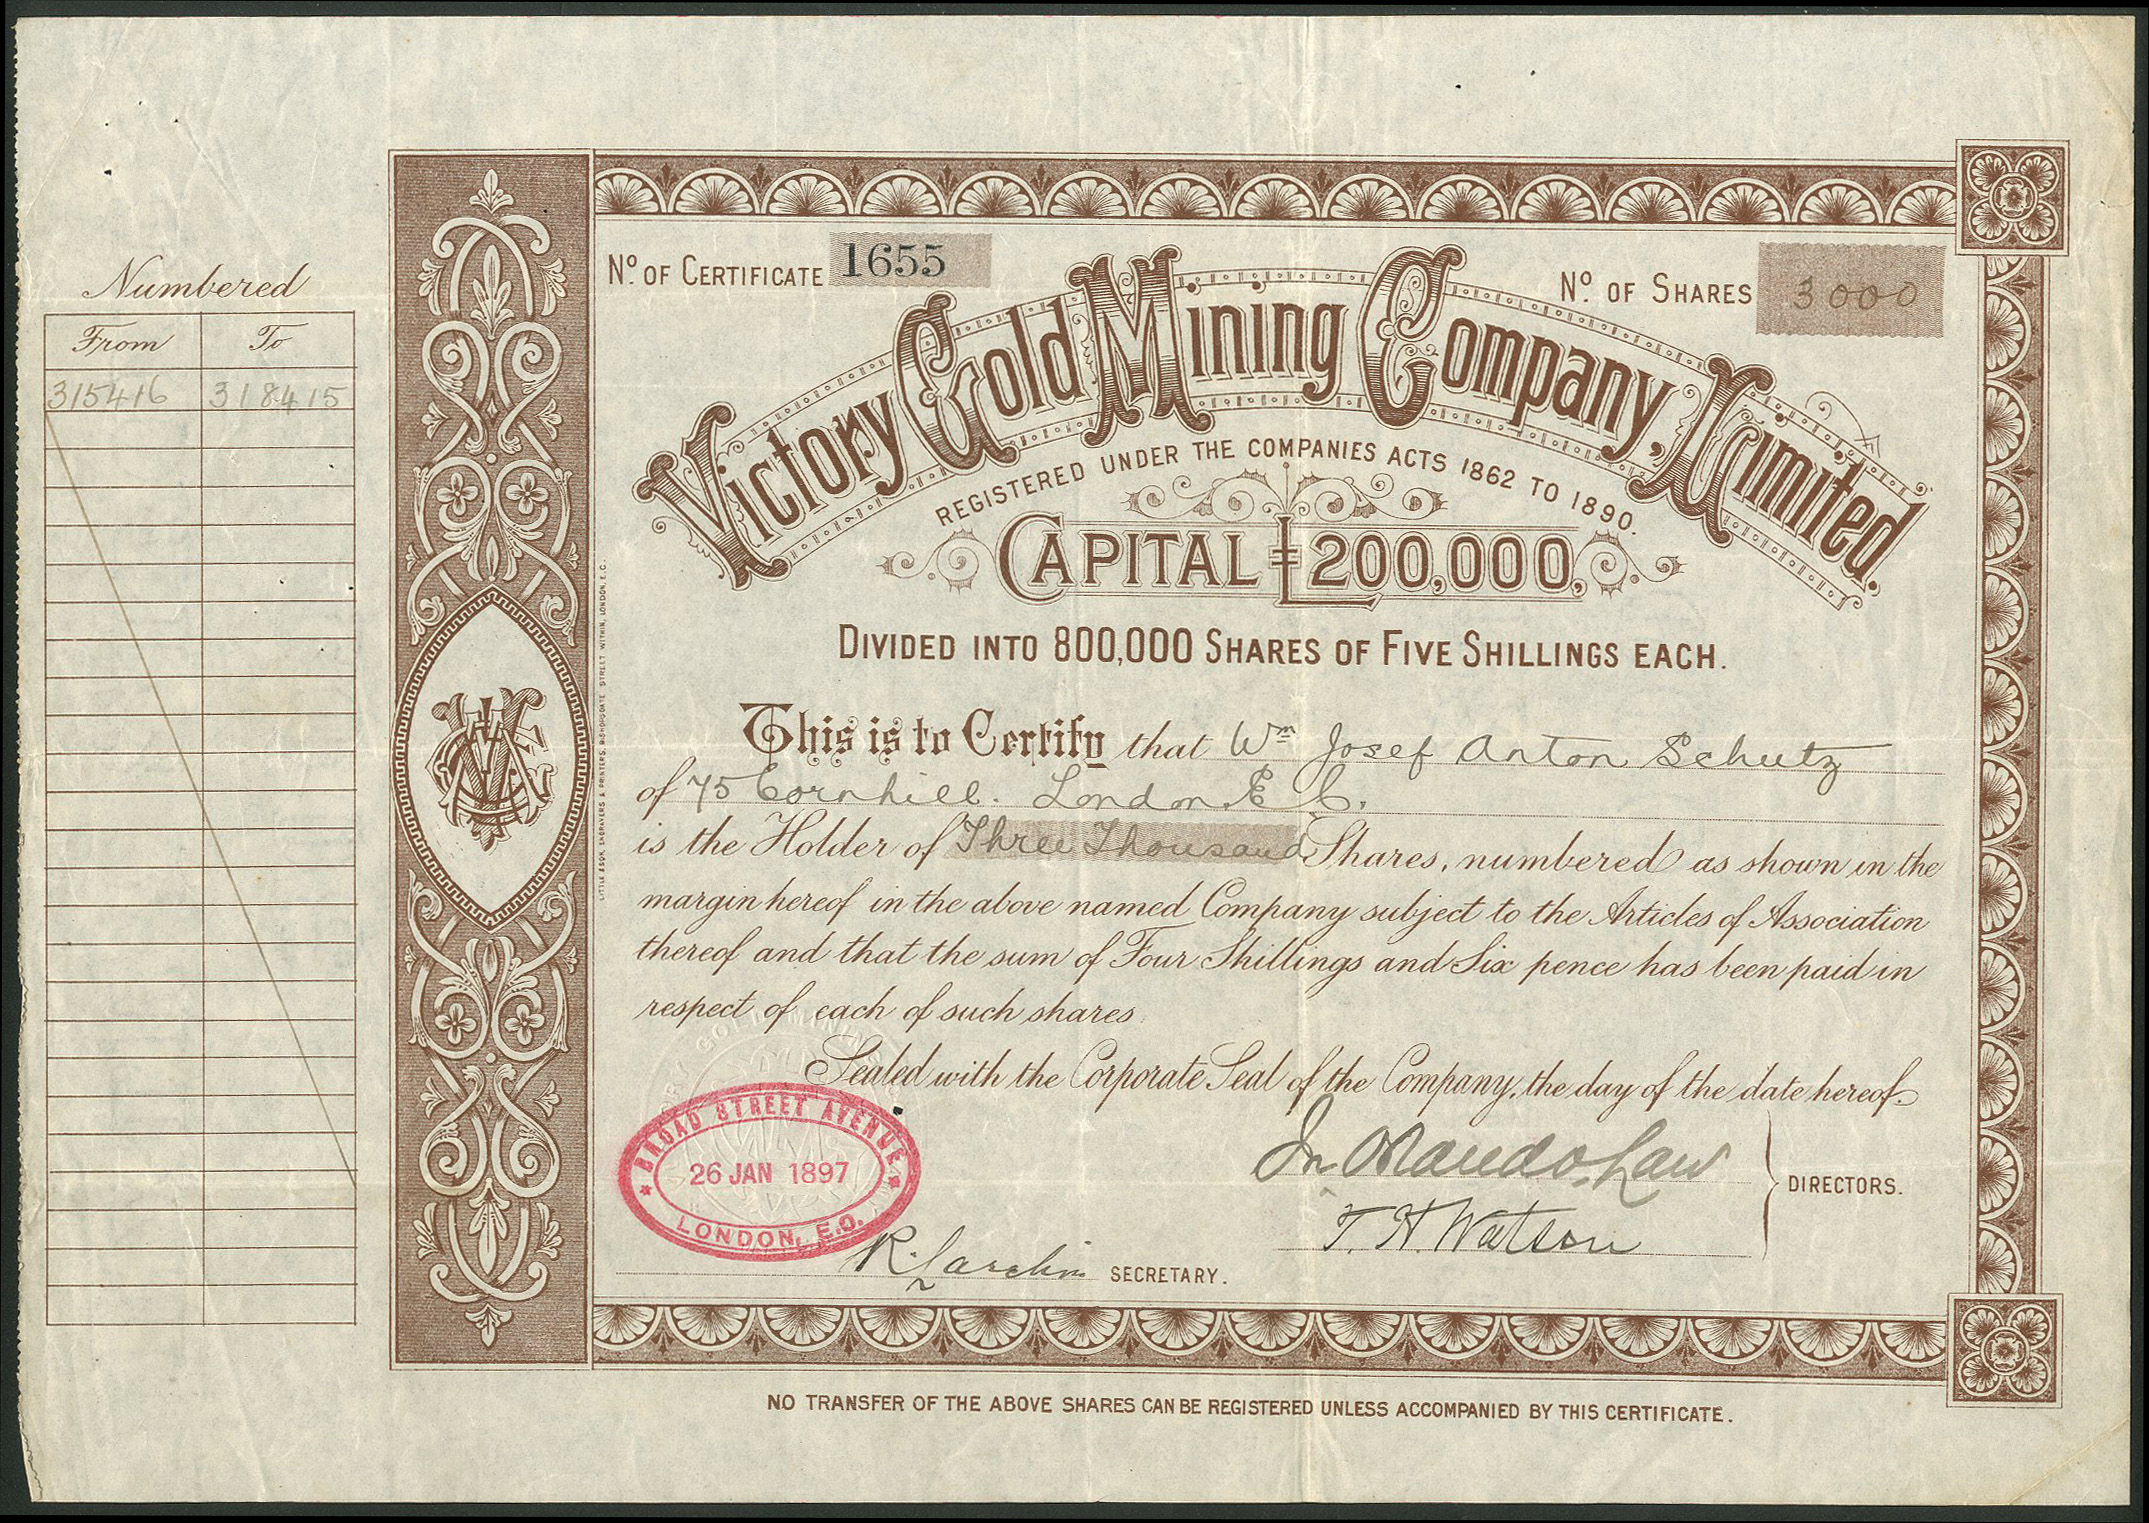 Numbered
From To
315416 318415
No. OF CERTIFICATE 1655
No. OF SHARES 3000
Victory Gold Mining Company, Limited.
REGISTERED UNDER THE COMPANIES ACTS 1862 TO 1890.
CAPITAL £200,000,
DIVIDED INTO 800,000 SHARES OF FIVE SHILLINGS EACH.
This is to Certify that Wm Josef Anton Schutz
of 75 Cornhill. London. E C.
is the Holder of Three Thousand Shares, numbered as shown in the
margin hereof in the above named Company subject to the Articles of Association
thereof and that the sum of Four Shillings and Six pence has been paid in
respect of each of such shares.
Sealed with the Corporate Seal of the Company, the day of the date hereof.
BROAD STREET AVENUE
26 JAN 1897
LONDON, E.C.
DIRECTORS.
T. H. Watson
SECRETARY.
LITTLE & SON, ENGRAVERS & PRINTERS, BISHOPSGATE STREET WITHIN, LONDON, E.C.
NO TRANSFER OF THE ABOVE SHARES CAN BE REGISTERED UNLESS ACCOMPANIED BY THIS CERTIFICATE.